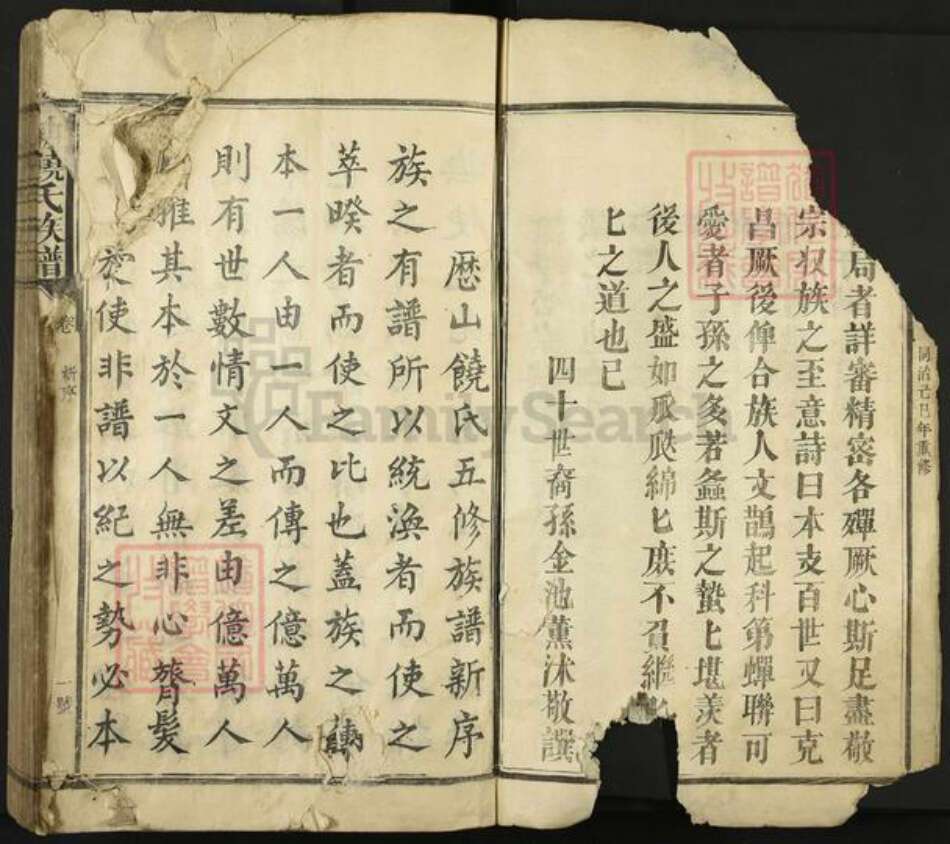 局者詳審精密各殫厥心斯足盡敬
宗収族之至意詩曰本支百世又曰克
昌厥後俾合族人文鵲起科第蟬聯可
愛者子孫之多若螽斯之蟄匕堪羡者
後人之盛如瓜瓞綿匕庶不負繼
匕之道也已
四十世裔孫金池薰沐敬譔
同治己巳年重修
歷山饒氏五修族譜新序
族之有譜所以統渙者而使之
萃暌者而使之比也蓋族之
本一人由一人而傳之億萬人
則有世數情文之差由億萬人
雅其本於一人無非心膂髮
使非譜以紀之勢必本
饒氏族譜
卷
新序
一號
FamilySearch